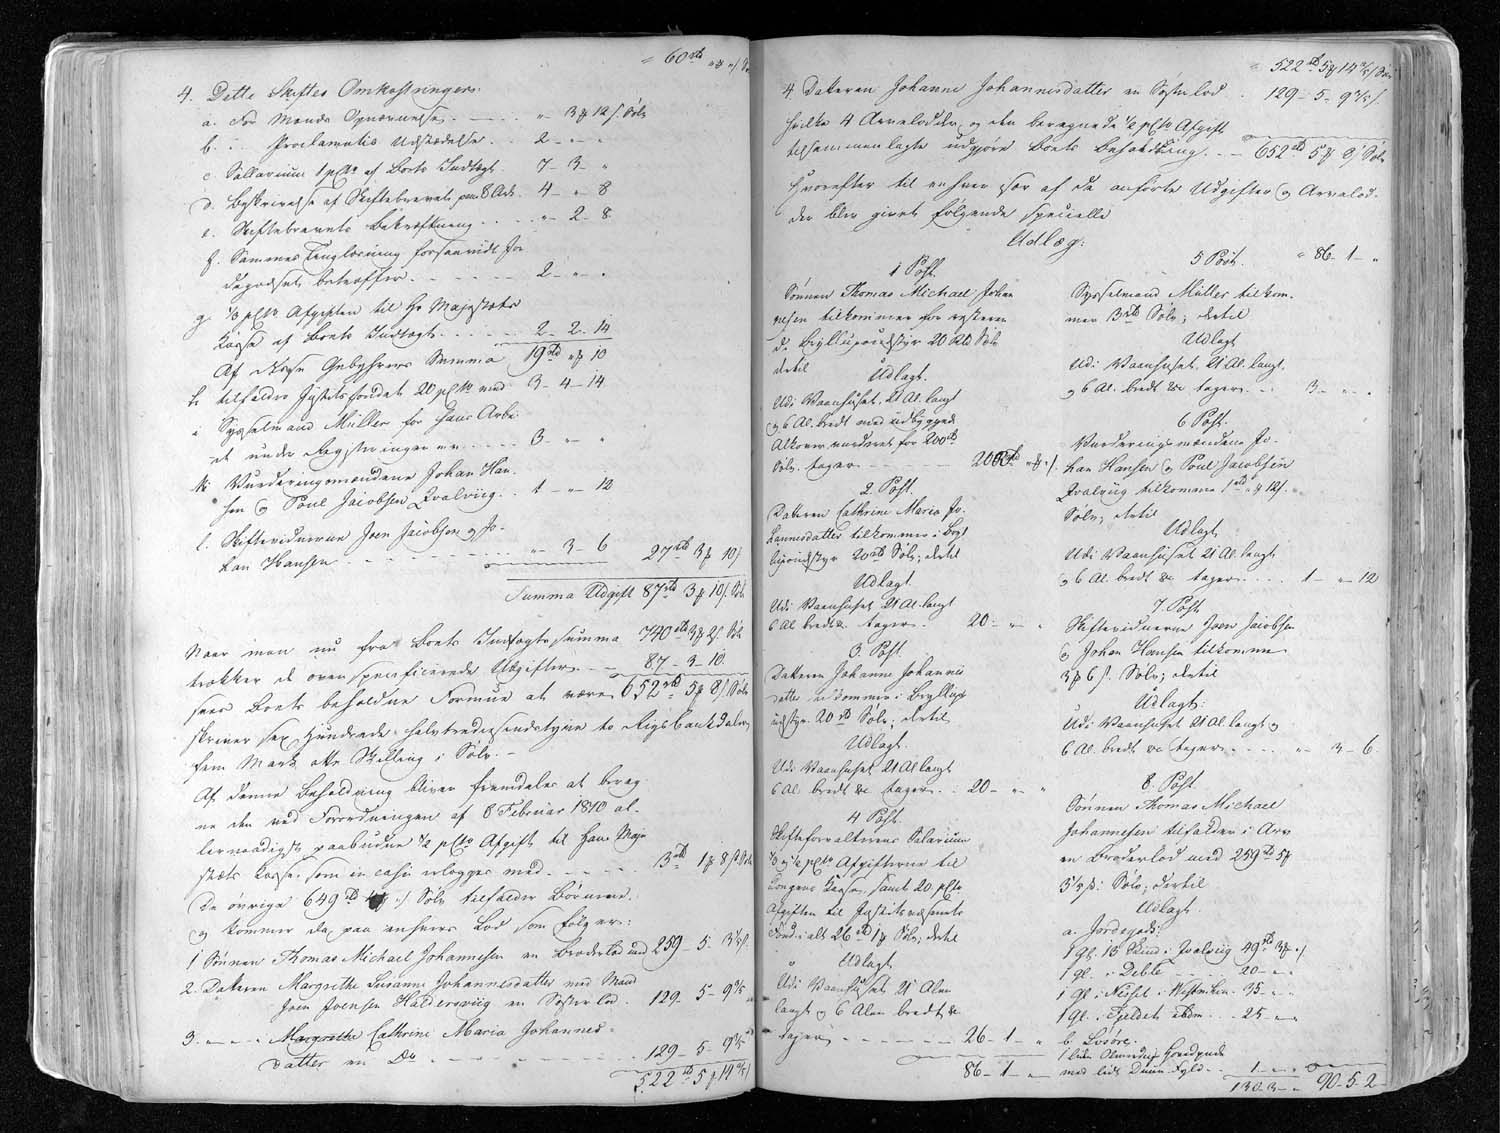 60 rd
4. Dette Skiftes Omkostninger:
a. For Mænds Opnævnelse - - - " 3 ₰ 12 s. Sølv
b. " Proclamatis Udstædelse. - 2 - " - "
c. Sallarium 1 pCto af Boets Indtægt - 7 - 3 - "
d. Beskrivelse af Skiftebrevet 8 Ark. 4 - " - 8
e. Skiftebrevets Bekræftning - - - " - 2 - 8
f. Sammes Tinglæsning forsaavidt Jor
degodset betræffer. - - - 2 - " - "
g. 1/3 pCto Afgiften til Hs Majestæts
Kasse af Boets Indtægt - - - 2 - 2 - 14
Af disse Gebyhrers Summa 19 rd " ₰ 10
h. tilfalder Justitsfondet 20 pCto med 3 - 4 - 14
i Sysselmand Müller for hans Arbei
det under Registeringen - - - 3 - " - "
k. Vurderingsmændene Johan Han
sen og Poul Jacobsen Qvalviig. - 1 - " - 12
l. Skiftevidnerne Joen Jacobsen og Jo
han Hansen - - - " - 3 - 6 27 rd 3 ₰ 10 s
Summa Udgift 87 rd 3 ₰ 10 s. Sølv
Naar man nu fra Boets Indtægtssumma 740 rd 3 ₰ 2 s. Sølv
trækker de oven specificerede Udgifter - - 87 - 3 - 10.
sees Boets beholdne Formue at være 652 rd 5 ₰ 8 s Sølv
skriver sex Hundrede halvtredsindstyve to Rigsbankdaler
fem Mark otte Skilling i Sølv. -
Af denne Beholdning bliver fremdeles at bereg
ne den ved Forordningen af 8 Februar 1810 al-
lernaadigst paabudne 1/2 pCto Afgift til Hans Maje
stæts Casse, som in casu erlægges med - - 3 rd 1 ₰ 8 s Sølv
De øvrige 649 rd Sølv tilfalder Børnene.
og kommer da paa enhvers Lod som følger:
1 Sønnen Thomas Michael Johannesen en Broderlod med 259 - 5 - 3 1/5 s.
2. Datteren Margrethe Susanne Johannesdatter med Mand
Joen Joensen Haldersviig en Søsterlod. 129. 5 - 9 3/5
3. - " - Margrethe Cathrine Maria Johannes-
datter en Do - - - 129 - 5 - 9 3/5
522 rd 5 ₰ 14 2/5 s
522 rd 5 ₰ 14 2/5 s Sølv
4. Datteren Johanne Johannesdatter en Søsterlod . 129 - 5 - 9 3/5 s.
hvilke 4 Arvelodder og den beregnede 1/2 pCto Afgift
tilsammenlagte udgjøre Boets Beholdning. - - 652 rd 5 ₰ 8 s Sølv
Hvorefter til enhver især af de anførte Udgifter og Arvelod-
der blev givet følgende specielle
Udlæg:
1 Post.
Sønnen Thomas Michael Johan
nesen tilkommer for resteren
de Bryllupsudstyr 20 Rd Sølv
dertil
Udlagt.
Udi Vaanhuset 21 Al. langt
og 6 Al. bredt med indbygged
Alkover vurderet for 200 rd
Sølv. tages - - - 20 rd " ₰ " s.
2. Post.
Datteren Cathrine Maria Jo
hannesdatter tilkommer i Bryl
lupsudstyr 20 rd Sølv; dertil
Udlagt
Udi Vaanhuset 21 Al. langt
6 Al bredt &c tages. - 20 - " - "
3. Post.
Datteren Johanne Johannes
datter tilkommer i Bryllups
udstyr 20 rd Sølv; dertil
Udlagt.
Udi Vaanhuset 21 Al langt
6 Al bredt &c tages. - 20 - " - "
4 Post.
Skifteforvalterens Salarium
1/3 og 1/2 pCto Afgifterne til
Kongens Kasse, samt 20 pCto
Afgiften til Justitsvæsenets
Fond i alt 26 rd 1 ₰ Sølv; dertil
Udlagt
Udi Vaanhuset 21 Alen
langt og 6 Alen bredt &c
tages - - - 26 - 1 - "
86 - 1 - "
5 Post. " 86 - 1 - "
Sysselmand Müller tilkom-
mer 3 rd Sølv; dertil
Udlagt
Udi Vaanhuset 21 Al. langt
og 6 Al. bredt &c tages - - 3 - " - "
6 Post.
Vurderingsmændene Jo-
han Hansen og Poul Jacobsen
Qvalviig tilkomme 1 rd " ₰ 12 s.
Sølv; dertil
Udlagt
Udi Vaanhuset 21 Al. langt
og 6 Al. bredt &c tages. - - 1 - " - 12
7. Post.
Skiftevidnerne Joen Jacobsen
og Johan Hansen tilkomme
3 ₰ 6 s. Sølv; dertil
Udlagt:
Udi Vaanhuset 21 Al. langt og
6 Al. bredt &c tages. - - - " - 3 - 6
8. Post.
Sønnen Thomas Michael
Johannesen tilfalder i Arv
en Broderlod med 259 rd 5 ₰
3 1/5 s: Sølv; dertil
Udlagt.
a. Jordegods:
1 gl. 13 Skind i Qvalviig 49 rd 3 ₰ " s
1 gl. i Deble - - 20 - " - "
1 gl. i Nesset i Westviken. 35 - " - "
1 gl. i Fjeldet - - 25 - " - "
b. Løsøre.
1 liden Hovedpude
med lidt Duun-Fyld - - 1 - " - "
130 - 3 - " 90 - 5 - 2